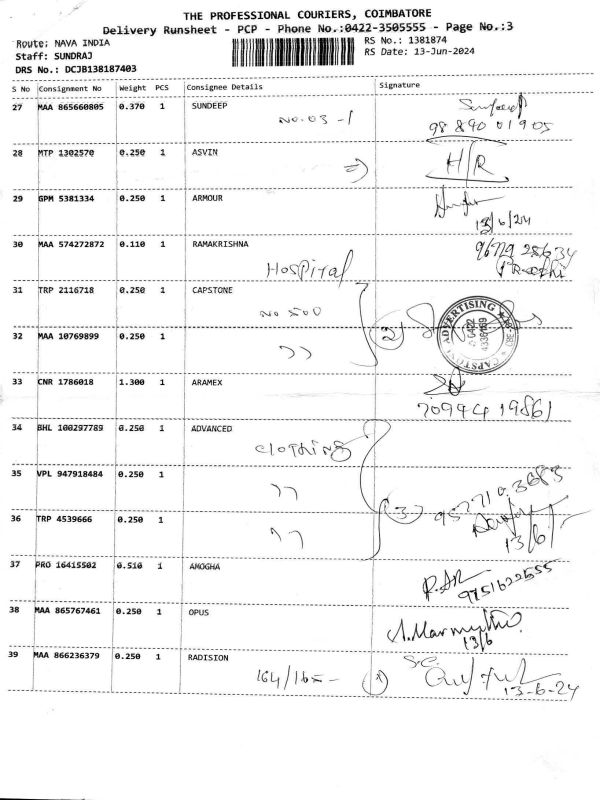 THE PROFESSIONAL COURIERS, COIMBATORE
Delivery Runsheet - PCP - Phone No.:0422-3505555 - Page No.:3
Route: NAVA INDIA
RS No.: 1381874
Staff: SUNDRAJ
RS Date: 13-Jun-2024
DRS No.: DCJB138187403
S No Consignment No Weight PCS Consignee Details Signature
27 MAA 865660805 0.370 1 SUNDEEP
No.03-1
98 840 01905
28 MTP 1302570 0.250 1 ASVIN
H/R
29 GPM 5381334 0.250 1 ARMOUR
13/6/24
30 MAA 574272872 0.110 1 RAMAKRISHNA
Hospital
31 TRP 2116718 0.250 1 CAPSTONE
No 500
ADVERTISING
0422
32 MAA 10769899 0.250 1
33 CNR 1786018 1.300 1 ARAMEX
70944 19861
34 BHL 100297789 0.250 1 ADVANCED
Clothing
35 VPL 947918484 0.250 1
36 TRP 4539666 0.250 1
3
13/6/-
37 PRO 16415502 0.510 1 AMOGHA
9751622555
38 MAA 865767461 0.250 1 OPUS
13/6
39 MAA 866236379 0.250 1 RADISION
164/165-
13-6-24